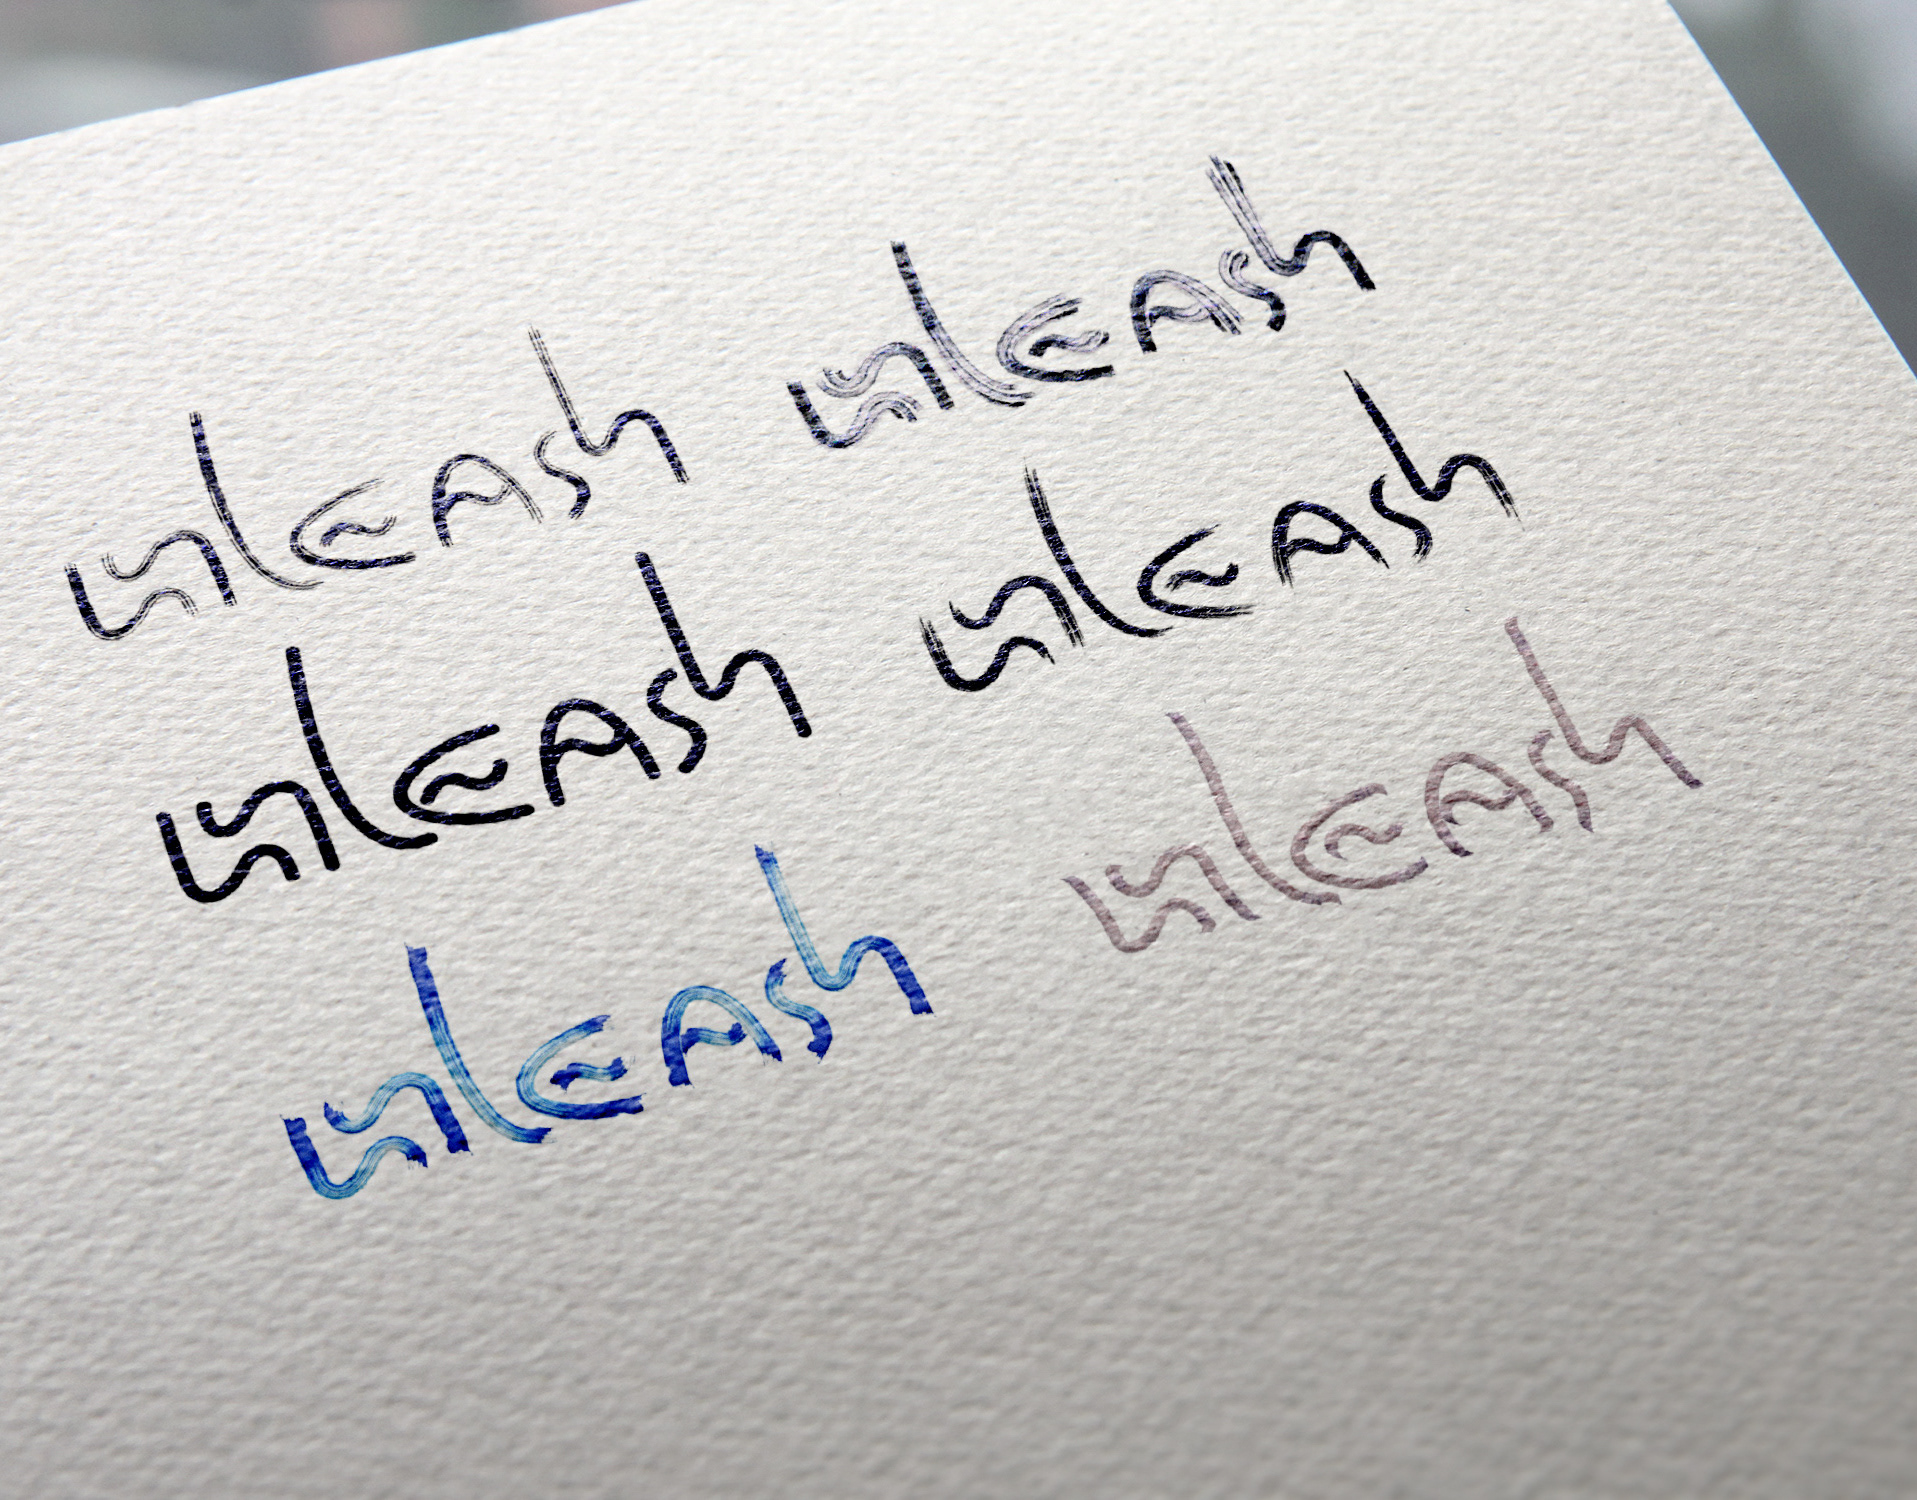 unleash unleash
unleash unleash
unleash unleash